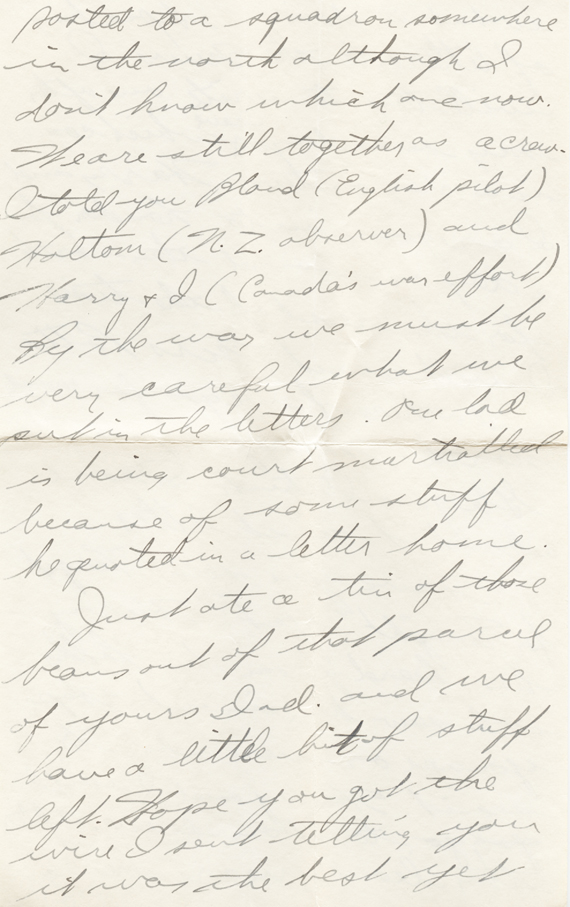 posted to a squadron somewhere
in the north although I
don't know which one now.
We are still together as a crew.
I told you Bland (English pilot)
Holtom (N.Z. observer) and
Harry & I (Canada's war effort)
By the way we must be
very careful what we
put in the letters. One lad
is being court martialled
because of some stuff
he quoted in a letter home.
Just ate a tin of those
beans out of that parcel
of yours Dad. and we
have a little bit of stuff
left. Hope you got the
wire I sent telling you
it was the best yet